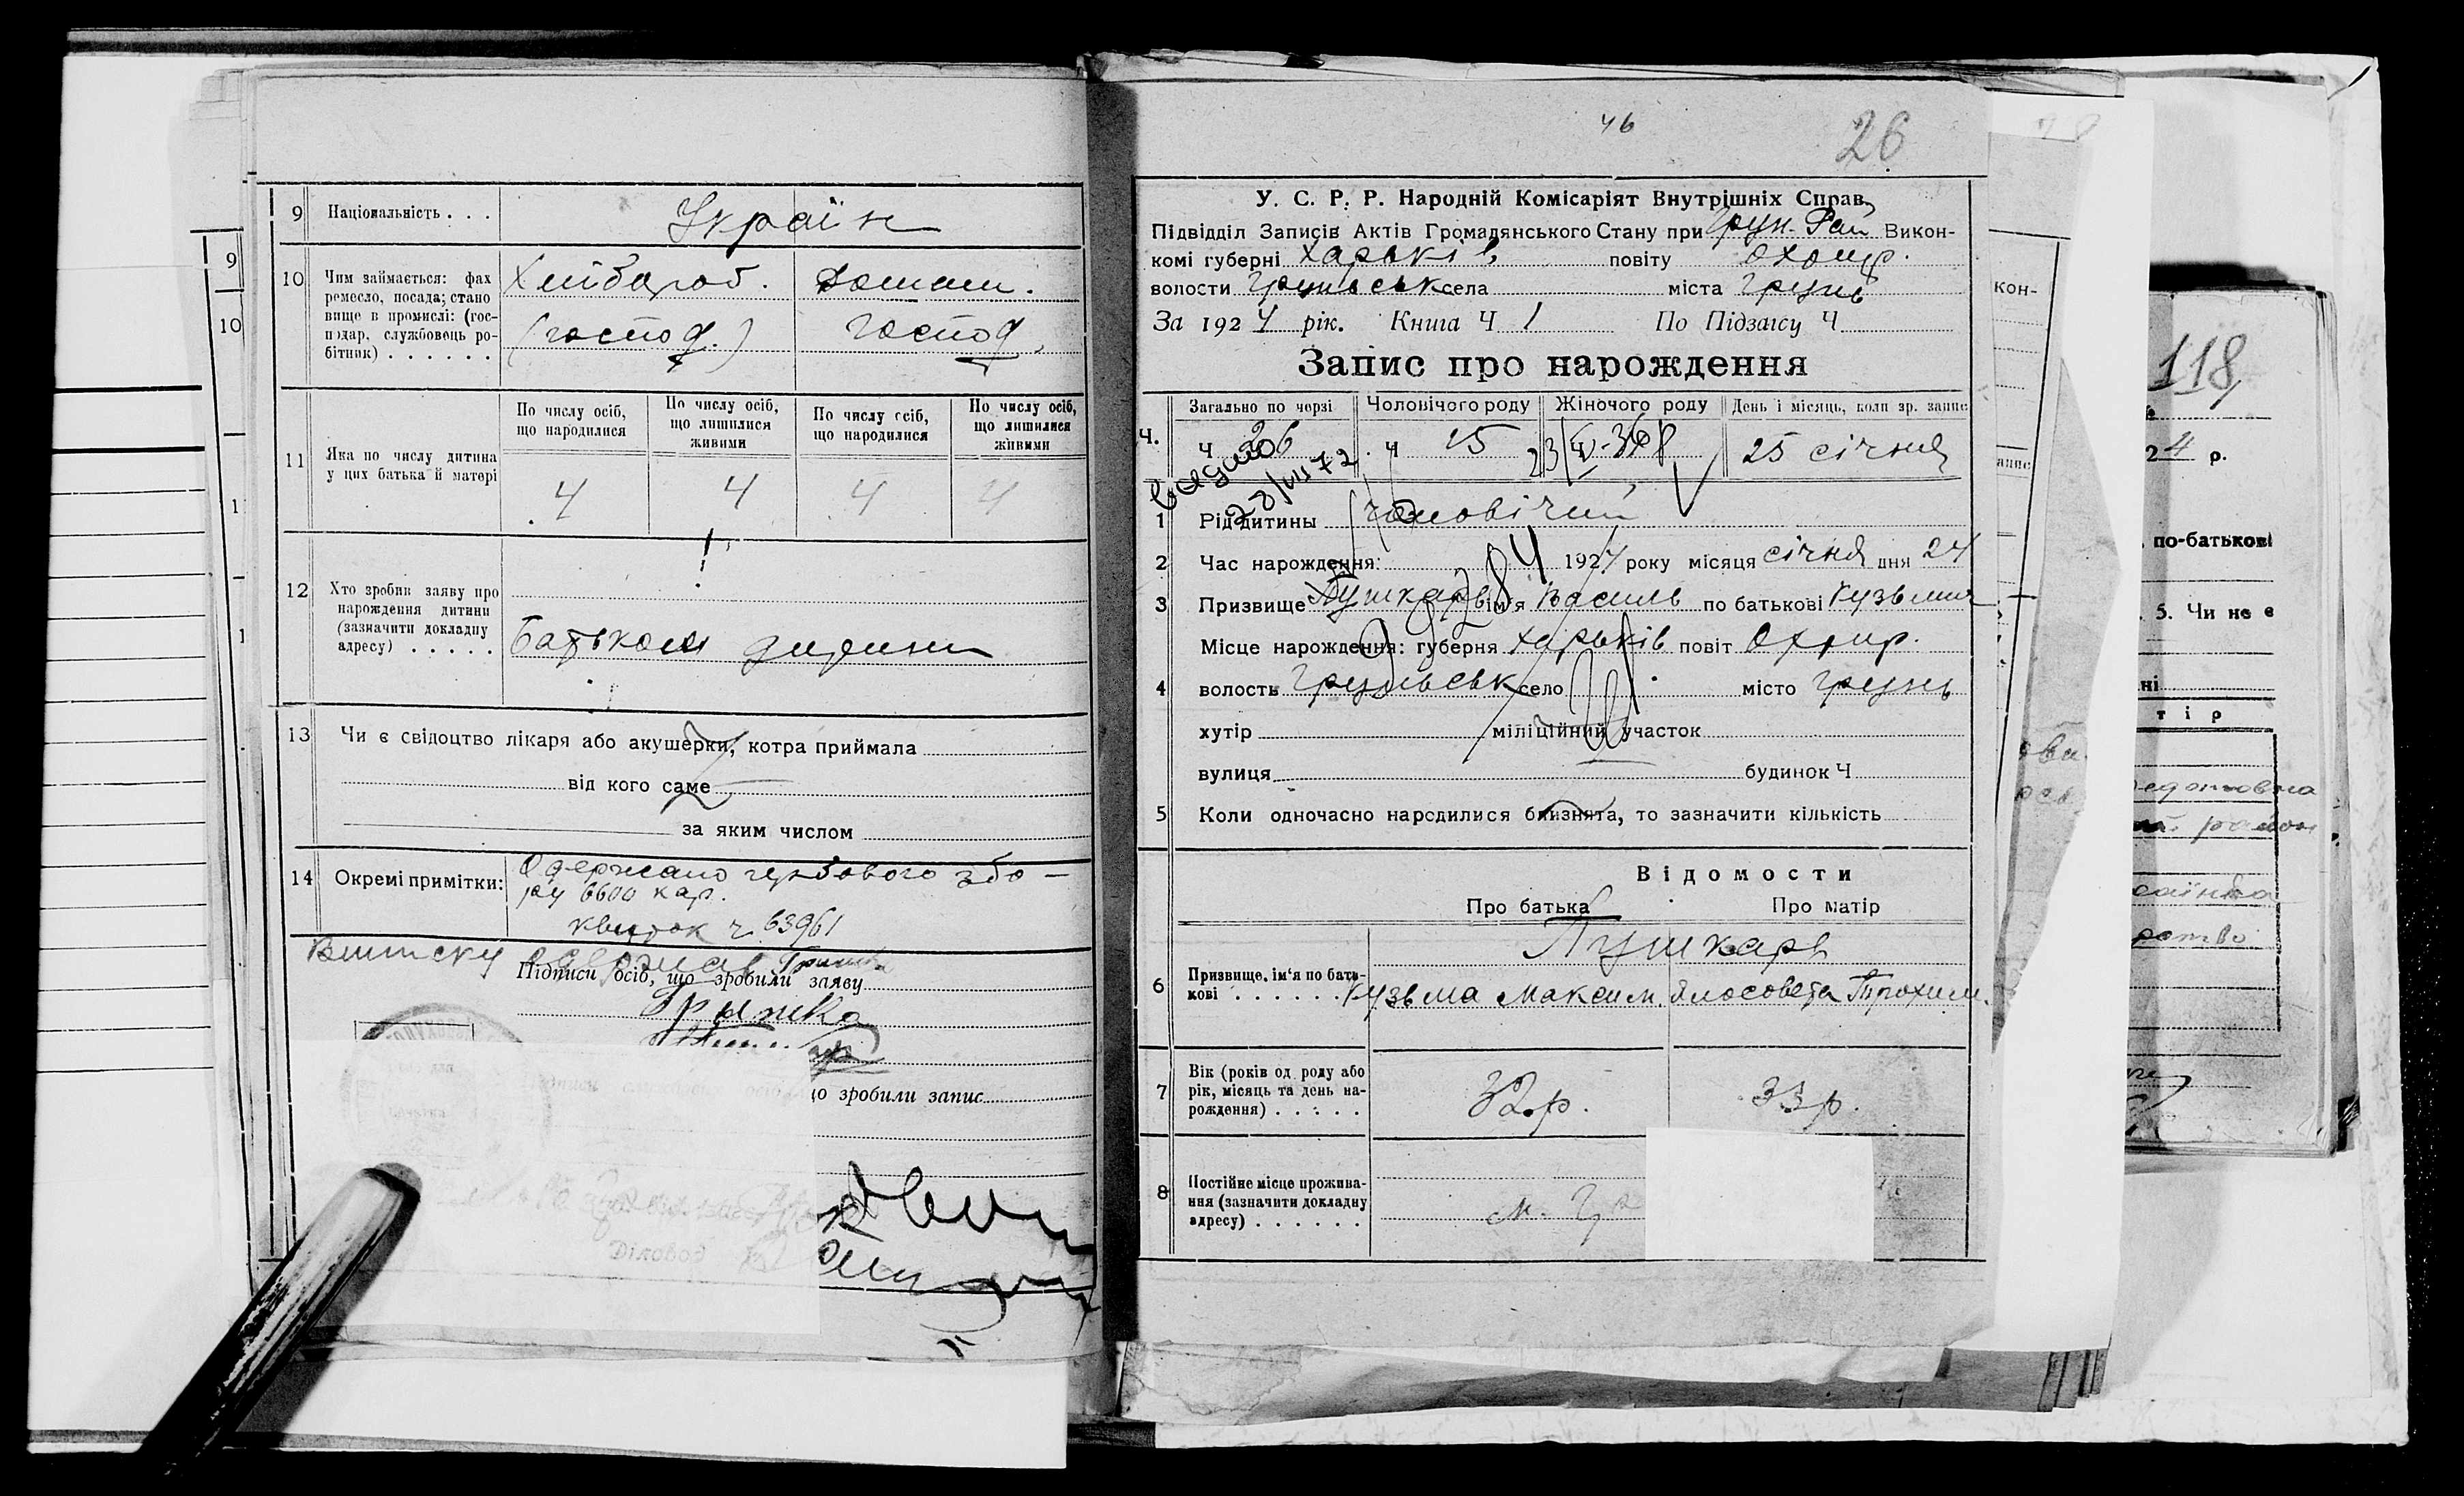 9 Національність . . .
Україн
10 Чим займається: фах
ремесло, посада; стано
вище в промислі: (гос-
подар, службовець ро-
бітник) . . . . . .
Хлібороб. Домаш.
(господ.) господ.
11 Яка по числу дитина
у цих батька й матері
По числу осіб,
що народилися
По числу осіб,
що лишилися
живими
По числу осіб,
що народилися
По числу осіб,
що лишилися
живими
4 4 4 4
12 Хто зробив заяву про
нарождення дитини
(зазначити докладну
адресу) . . . . .
Батьком дитини
13 Чи є свідоцтво лікаря або акушерки, котра приймала
від кого саме
за яким числом
14 Окремі примітки:
Одержано гербового збо-
ру 6600 кар.
квиток ч. 63961
Виписку одержав Гришка
Підписи осіб, що зробили заяву
Гришка
зробили запис
Діловод
46
26
У. С. Р. Р. Народній Комісаріят Внутрішніх Справ
Підвідділ Записів Актів Громадянського Стану при Грун. Рай Викон-
комі губерні Харьків повіту Охтир.
волости Груньськ села міста Грунь
За 1924 рік. Книга Ч 1 По Підзагсу Ч
Запис про нарождення
Загально по черзі Чоловічого роду Жіночого роду День і місяць, коли зр. запис
Ч. ч 26 ч 15 25 січня
видано
28/VII 72
1 Рід дитины чоловічий
2 Час нарождення: 1924 року місяця січня дня 24
3 Призвище Пушкарь ім'я Василь по батькові Кузьмич
Місце нарождення: губерня Харьків повіт Охтир.
4 волость Груньськ село місто Грунь
хутір міліційний участок
вулиця будинок Ч
5 Коли одночасно народилися близнята, то зазначити кількість
Відомости
Про батька Про матір
6 Призвище, ім'я по бать-
кові . . . . . .
Пушкарь
Кузьма Максим. Ялосовета Трохим.
7 Вік (років од роду або
рік, місяць та день на-
рождення) . . . . .
32 р. 33 р.
8 Постійне місце прожива-
ння (зазначити докладну
адресу) . . . . . .
м. Гр
кон-
118
24 р.
по-батькові
5. Чи не є
тір
район